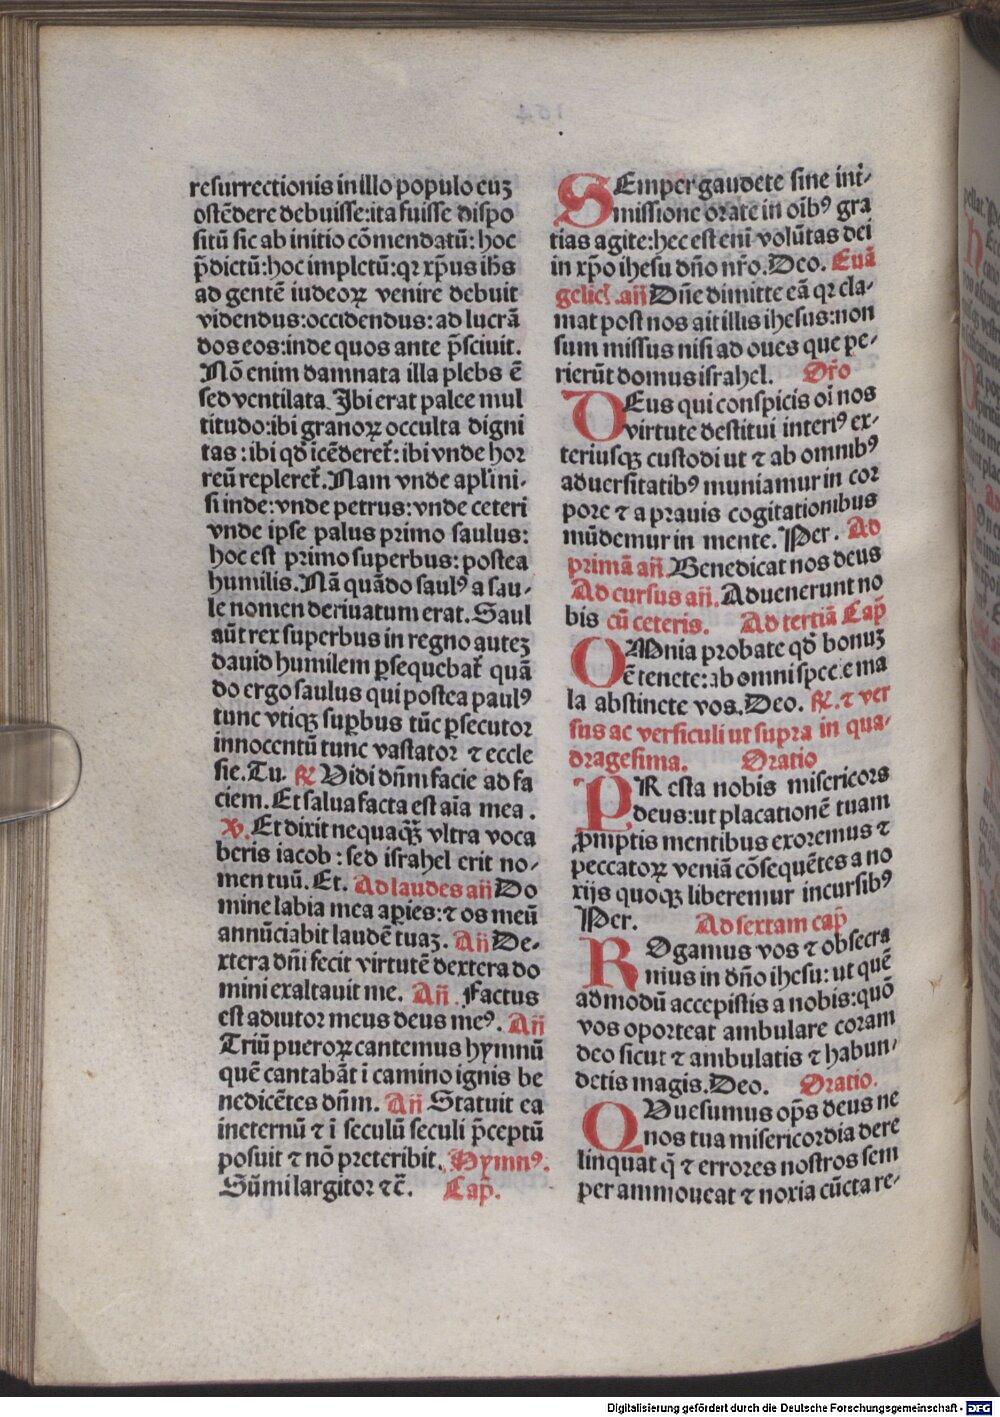 resurrectionis in illo populo euꝫ
ostẽdere debuisse:ita fuisse dispo
sitũ sic ab initio cõmendatũ: hoc
p̃dictũ:hoc impletũ:qꝛ xp̃us ih̃s
ad gentẽ iudeoꝝ venire debuit
videndus:occidendus: ad lucrã
dos eos:inde quos ante p̃sciuit.
Nõ enim damnata illa plebs ẽ
sed ventilata. Ibi erat palee mul
titudo:ibi granoꝝ occulta digni
tas : ibi qd̃ icẽderet̃: ibi vnde hor
reũ repleret̃. Nam vnde apl̃i ni-
si inde: vnde petrus: vnde ceteri
vnde ipse palus primo saulus:
hoc est primo superbus: postea
humilis. Nã quãdo saulꝰ a sau-
le nomen deriuatum erat. Saul
aũt rex superbus in regno auteꝫ
dauid humilem ꝑsequebat̃ quã
do ergo saulus qui postea paulꝰ
tunc vtiqꝫ suꝑbus tũc ꝑsecutor
innocentũ tunc vastator ⁊ eccle
sie. Tu. ℟ Vidi dñm facie ad fa
ciem. Et salua facta est aĩa mea .
℣. Et dixit nequaqꝫ̃ vltra voca
beris iacob : sed israhel erit no-
men tuũ. Et. Ad laudes añ Do
mine labia mea aꝑies: ⁊ os meũ
annũciabit laudẽ tuaꝫ. Añ De-
xtera dñi fecit virtutẽ dextera do
mini exaltauit me. Añ . Factus
est adiutor meus deus meꝰ. Añ
Triũ pueroꝝ cantemus hymnũ
quẽ cantabãt ĩ camino ignis be
nedicẽtes dñm. Añ Statuit ea
in eternũ ⁊ ĩ seculũ seculi p̃ceptũ
posuit ⁊ nõ preteribit. Hymnꝰ.
Sũmi largitor ⁊c̃. Cap̃.
SEmper gaudete sine int̃-
missione orate in oĩbꝰ gra
tias agite: hec est enĩ volũtas dei
in xp̃o ihesu dño nr̃o. Deo. Euã
gelicł. añ Dñe dimitte eã qꝛ cla-
mat post nos ait illis ihesus: non
sum missus nisi ad oues que pe-
rierũt domus israhel. Or̃o
DEus qui conspicis oĩ nos
virtute destitui interiꝰ ex-
teriusqꝫ custodi ut ⁊ ab omnibꝰ
aduersitatibꝰ muniamur in cor
pore ⁊ a prauis cogitationibus
mũdemur in mente. Per. Ad
primã añ Benedicat nos deus
Ad cursus añ. Aduenerunt no
bis cũ ceteris. Ad tertiã Cap̃
OMnia probate qd̃ bonuꝫ
ẽ tenete: ab omni specie ma
la abstinete vos. Deo. ℟. ⁊ ver
sus ac versiculi ut supra in qua-
dragesima. Oratio
PResta nobis misericors
deus: ut placationẽ tuam
ꝓmptis mentibus exoremus ⁊
peccatoꝝ veniã cõsequẽtes a no
xijs quoqꝫ liberemur incursibꝰ
Per. Ad sextam cap̃
ROgamus vos ⁊ obsecra
mus in dño ihesu: ut quẽ
admodũ accepistis a nobis: quõ
vos oporteat ambulare coram
deo sicut ⁊ ambulatis ⁊ habun-
detis magis. Deo. Oratio.
QVuesumus op̃s deus ne
nos tua misericordia dere
linquat q̃ ⁊ errores nostros sem
per ammoueat ⁊ noxia cũcta re-
Digitalisierung gefördert durch die Deutsche Forschungsgemeinschaft - DFG